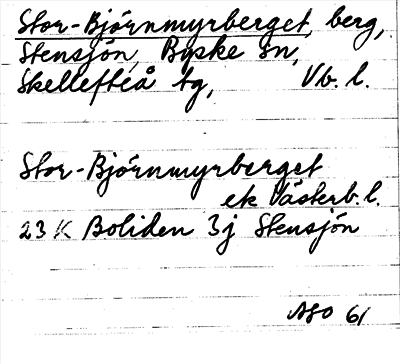 Stor-Björnmyrberget, berg,
Stensjön, Byske sn,
Skellefteå tg, Vb. l.
Stor-Björnmyrberget
ek Västerb. l.
23 K Boliden 3j Stensjön
ASO 61